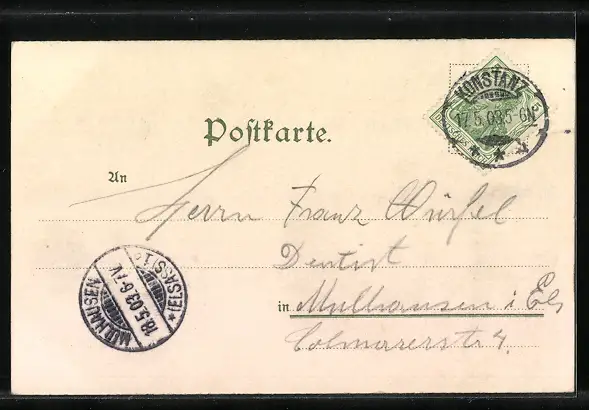 KONSTANZ
17.5.03.5-6N
Postkarte.
An
Herrn Franz Würfel
Dentist
in Mülhausen i Els
Colmarerstr 4.
MÜLHAUSEN
18.5.03.6-7V
(ELSASS) 1